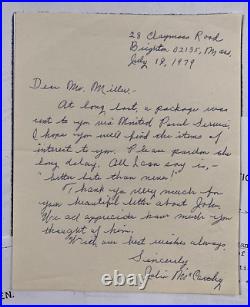 28 Claymoss Road
Brighton 02135, Mass.
July 18, 1979
Dear Mr. Miller-
At long last, a package was
sent to you via United Parcel Service.
I hope you will find the items of
interest to you. Please pardon the
long delay. All I can say is, -
"better late than never"!
Thank you very much for
your beautiful letter about John.
We all appreciate how much he
thought of him.
With our best wishes always,
Sincerely
McCarthy